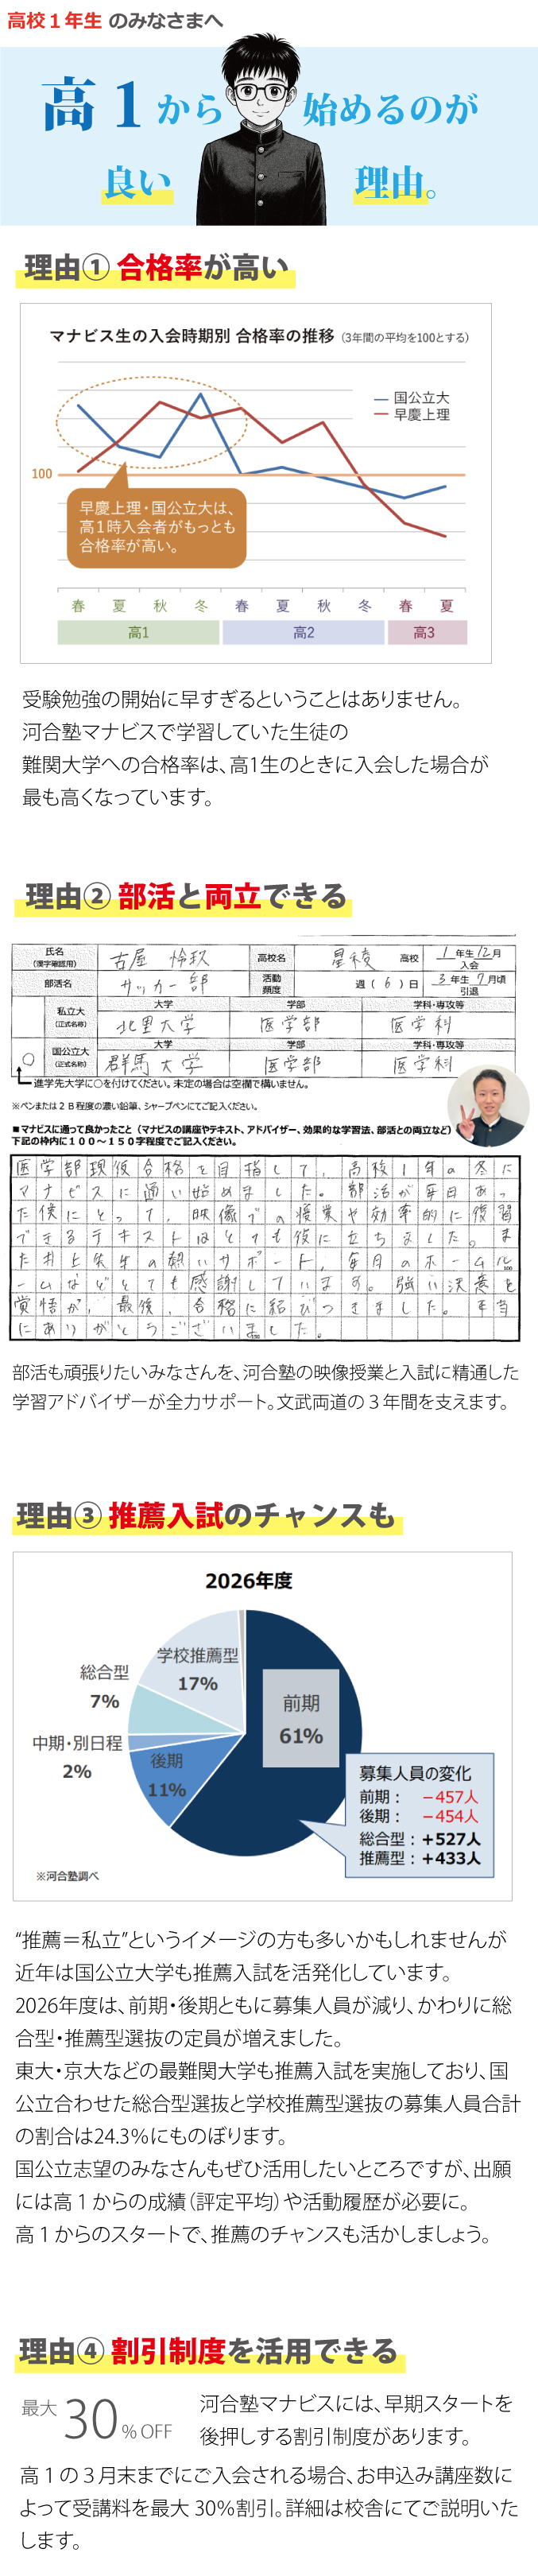 高校１年生 のみなさまへ
高１から始めるのが
良い 理由。
理由① 合格率が高い
マナビス生の入会時期別 合格率の推移（3年間の平均を100とする）
国公立大
早慶上理
100
早慶上理・国公立大は、
高1時入会者がもっとも
合格率が高い。
春 夏 秋 冬 春 夏 秋 冬 春 夏
高1 高2 高3
受験勉強の開始に早すぎるということはありません。
河合塾マナビスで学習していた生徒の
難関大学への合格率は、高1生のときに入会した場合が
最も高くなっています。
理由② 部活と両立できる
氏名 古屋 怜玖 高校名 星稜 高校 1年生12月
(漢字確認用) 入会
部活名 サッカー部 活動頻度 週（6）日 3年生7月頃引退
大学 学部 学科・専攻等
私立大（正式名称） 北里大学 医学部 医学科
大学 学部 学科・専攻等
〇 国公立大（正式名称） 群馬大学 医学部 医学科
進学先大学に〇を付けてください。未定の場合は空欄で構いません。
※ペンまたは２Ｂ程度の濃い鉛筆、シャープペンにてご記入ください。
■マナビスに通って良かったこと（マナビスの講座やテキスト、アドバイザー、効果的な学習法、部活との両立など）
下記の枠内に１００～１５０字程度でご記入ください。
医学部現役合格を目指して、高校1年の冬に
マナビスに通い始めました。部活が毎日あっ
た僕にとって、映像での授業や効率的に復習
できるテキストはとても役に立ちました。ま
た井上先生の熱いサポート、毎月のホームル
ームなどとても感謝しています。強い決意と
覚悟が、最後、合格に結びつきました。本当
にありがとうございました。
部活も頑張りたいみなさんを、河合塾の映像授業と入試に精通した
学習アドバイザーが全力サポート。文武両道の３年間を支えます。
理由③ 推薦入試のチャンスも
2026年度
学校推薦型
17%
総合型
7%
中期・別日程
2%
後期
11%
前期
61%
募集人員の変化
前期： －457人
後期： －454人
総合型：＋527人
推薦型：＋433人
※河合塾調べ
“推薦＝私立”というイメージの方も多いかもしれませんが
近年は国公立大学も推薦入試を活発化しています。
2026年度は、前期・後期ともに募集人員が減り、かわりに総
合型・推薦型選抜の定員が増えました。
東大・京大などの最難関大学も推薦入試を実施しており、国
公立合わせた総合型選抜と学校推薦型選抜の募集人員合計
の割合は24.3％にものぼります。
国公立志望のみなさんもぜひ活用したいところですが、出願
には高１からの成績（評定平均）や活動履歴が必要に。
高１からのスタートで、推薦のチャンスも活かしましょう。
理由④ 割引制度を活用できる
最大 30％OFF
河合塾マナビスには、早期スタートを
後押しする割引制度があります。
高１の３月末までにご入会される場合、お申込み講座数に
よって受講料を最大 30%割引。詳細は校舎にてご説明いた
します。